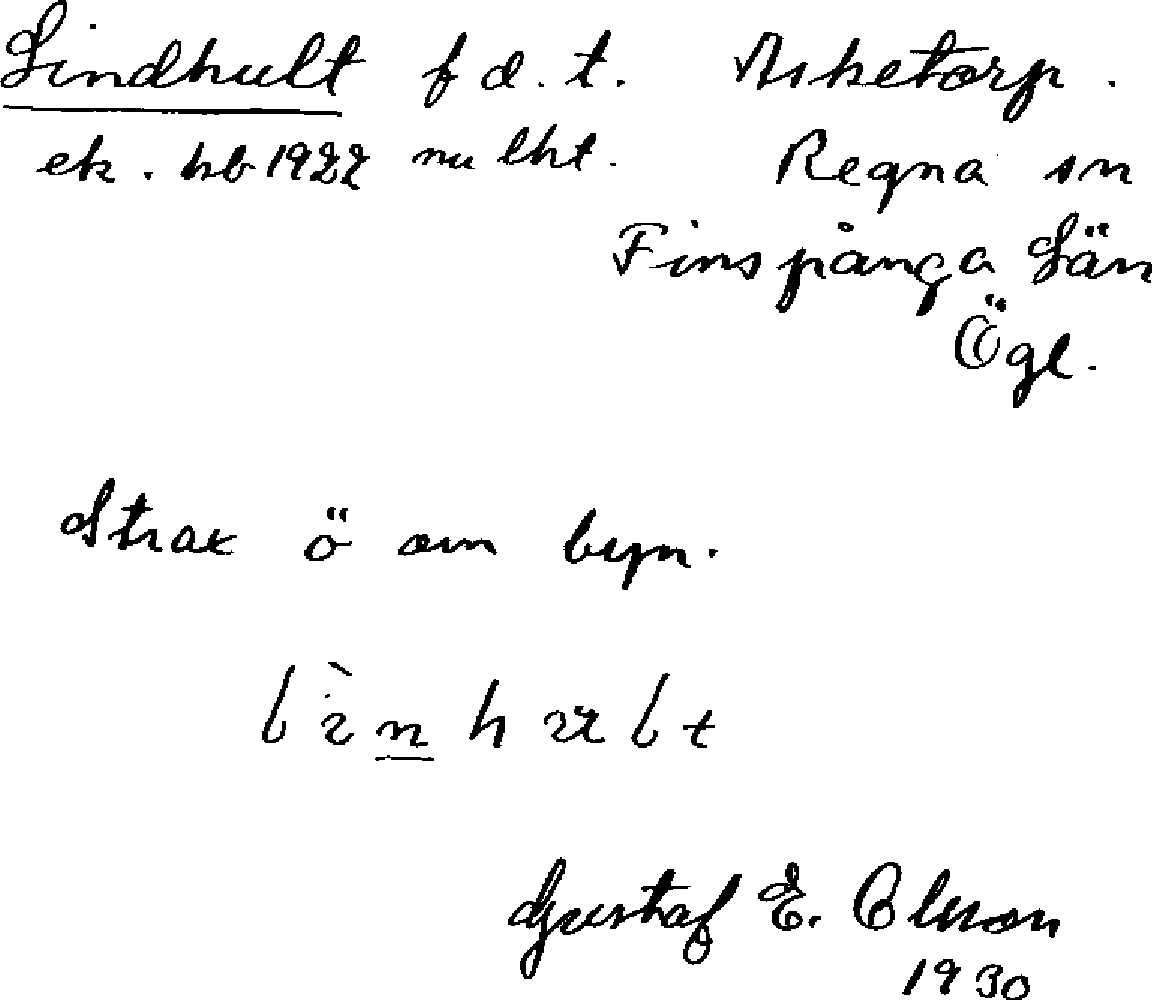 Lindhult f d. t. Asketorp.
ek. kb 1922 nu lht. Regna sn
Finspånga Län
Ögl.
Strax ö om byn.
Gustaf E. Olsson
1930